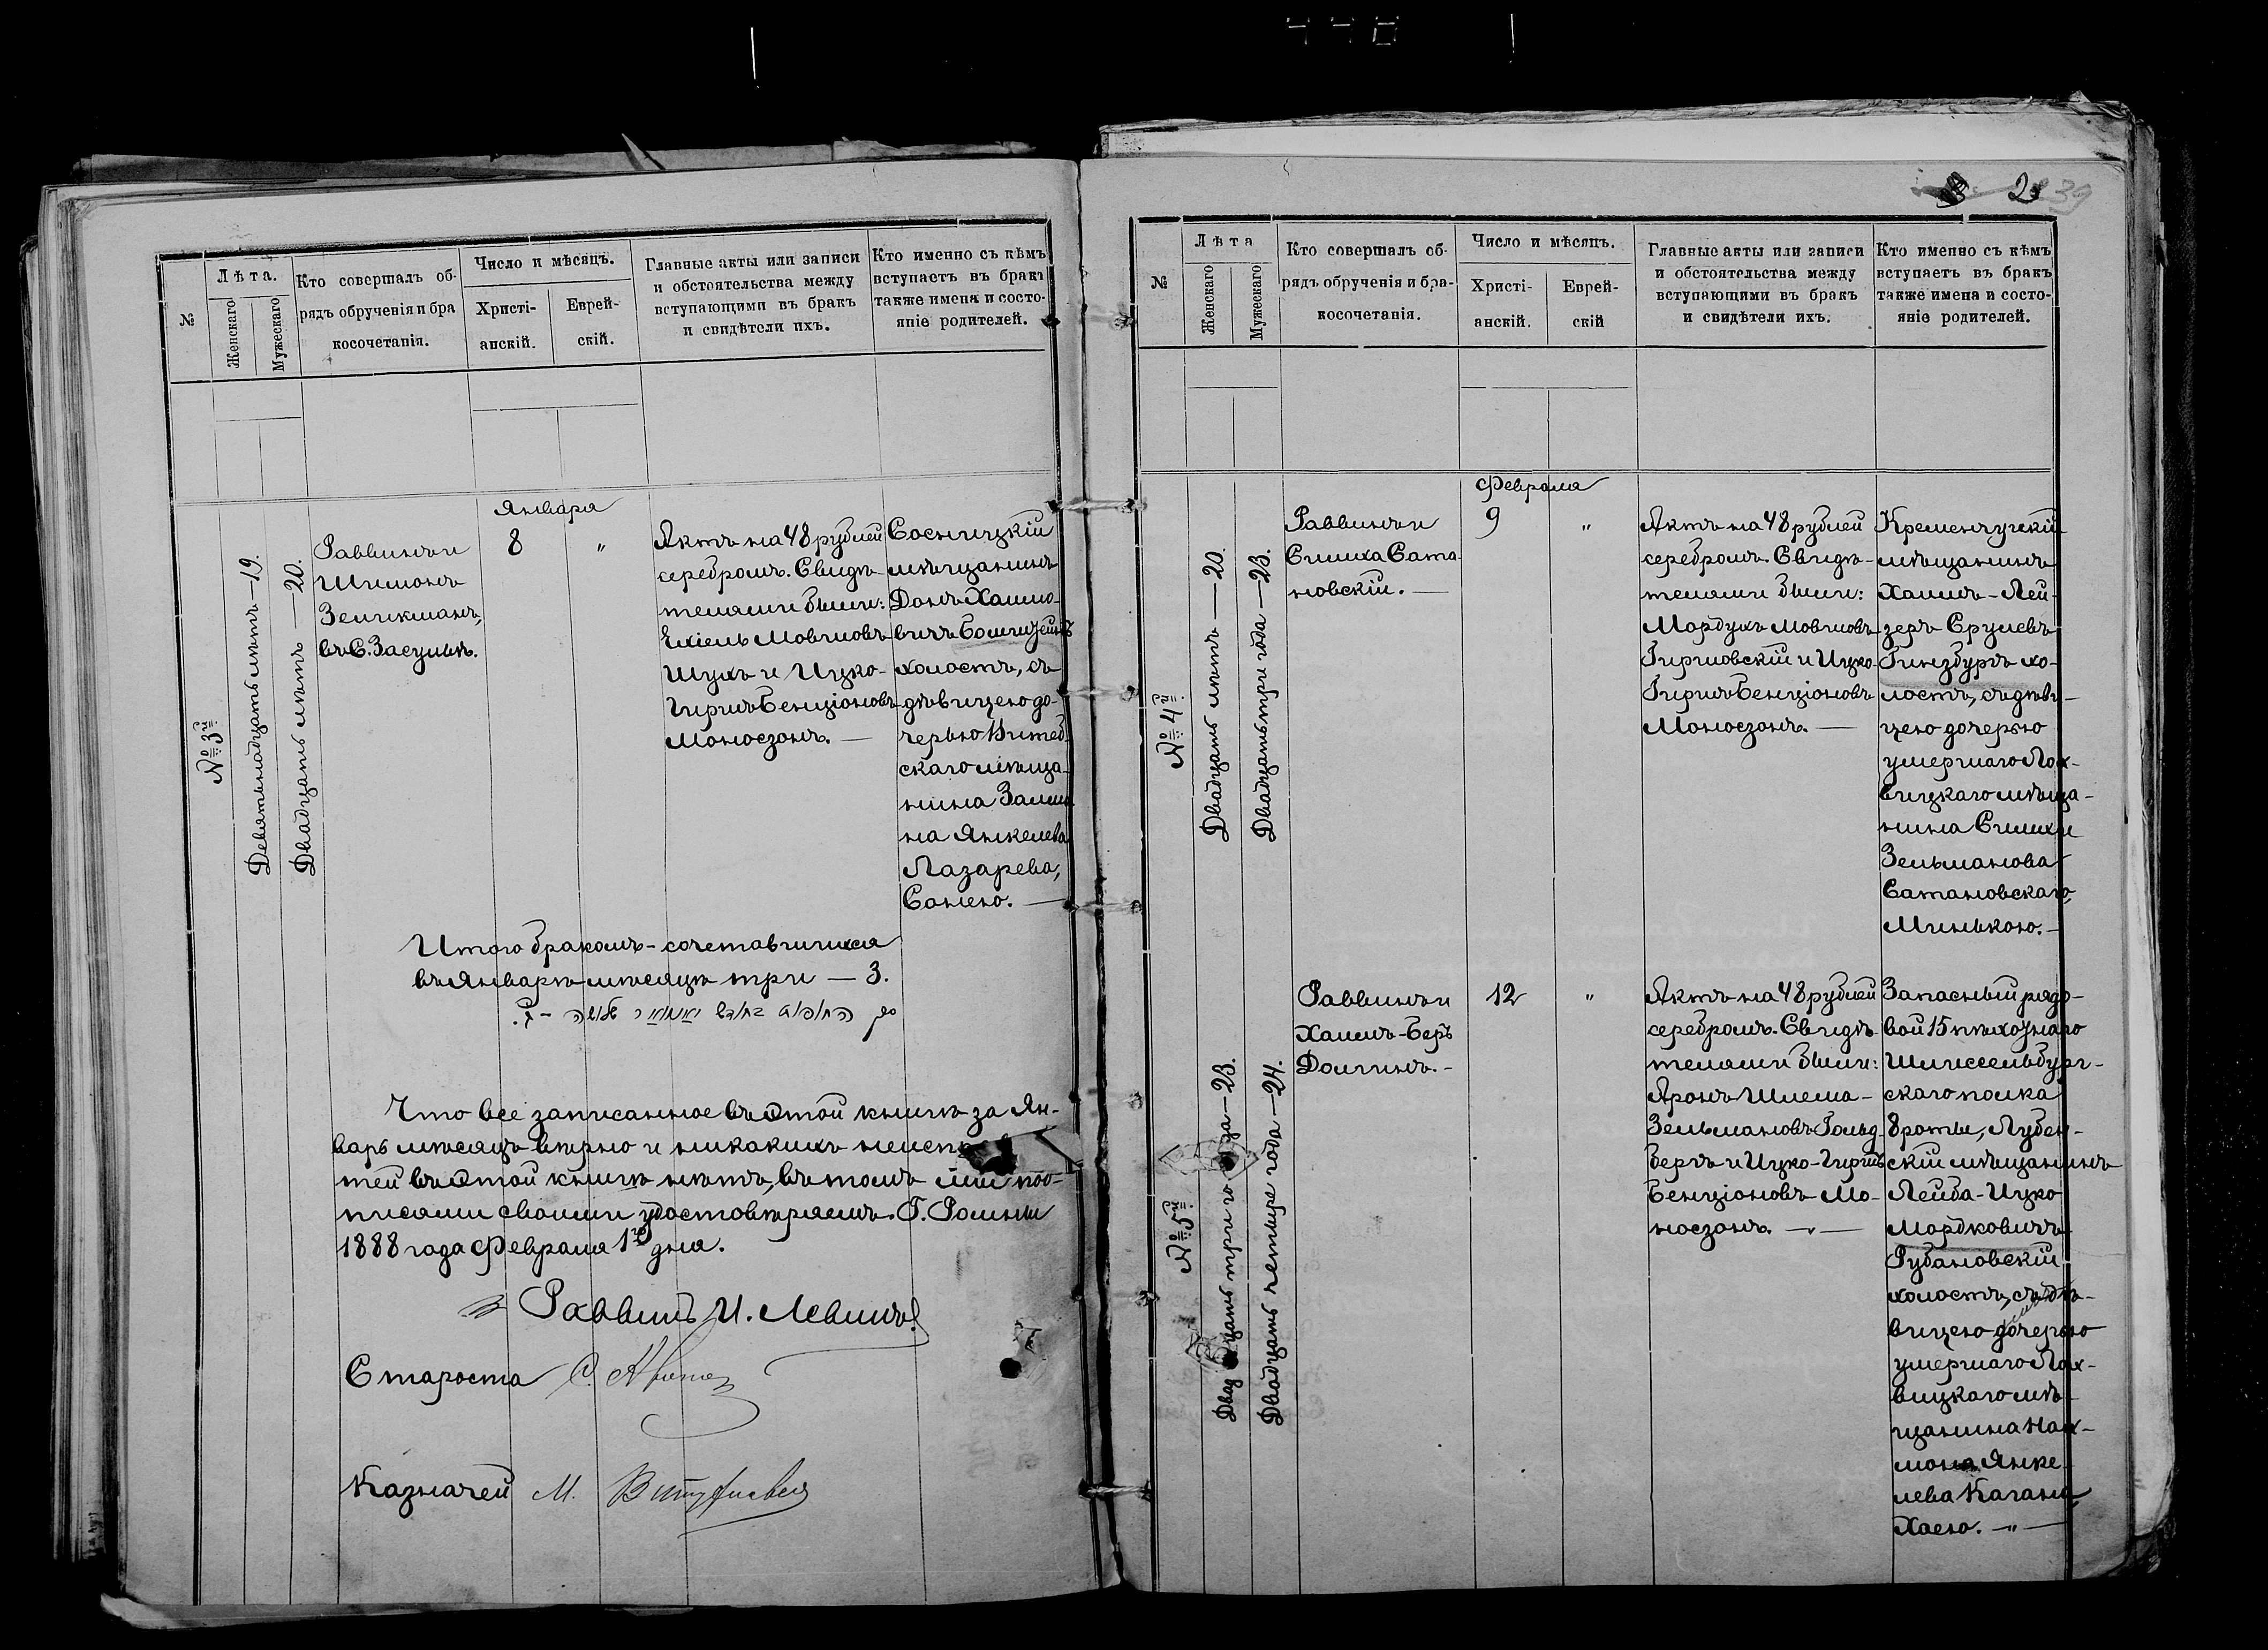 №
Лѣта.
Женскаго
Мужескаго
Кто совершалъ об-
рядъ обрученія и бра
косочетанія.
Число и мѣсяцъ.
Христі-
анскій.
Еврей-
скій.
Главные акты или записи
и обстоятельства между
вступающими въ бракъ
и свидѣтели ихъ.
Кто именно съ кѣмъ
вступаетъ въ бракъ
также имена и состо-
яніе родителей.
№ 3й.
Девятьнадцать лѣтъ — 19.
Двадцать лѣтъ — 20.
Раввинъ и
Шимонъ
Зеликманъ,
въ С. Засульѣ.
Января
8
"
Актъ на 48 рублей
серебромъ. Свидѣ-
телями были:
Ехіель Мовшовъ
Шухъ и Ицко-
Гиршъ Бенціоновъ
Моносзонъ. —
Сосницкій
мѣщанинъ
Донъ Хаимо-
вичъ
холостъ, съ
дѣвицею до-
черью Витеб-
скаго мѣща-
нина Залмо-
на Янкелева
Лазарева,
Сонею. —
Итого бракомъ-сочетавшихся
въ Январѣ мѣсяцѣ три — 3.
סך החופות בחודש יאנואר שלשה - ג.
Что все записанное въ этой книгѣ за Ян-
варь мѣсяцъ вѣрно и никакихъ
тей въ этой книгѣ нѣтъ, въ томъ мы под-
писами своими удостовѣряемъ. Г. Ромны
1888 года Февраля 1го дня.
Раввинъ И. Левинъ
Староста С.
Казначей М.
2
39
№
Лѣта
Женскаго
Мужескаго
Кто совершалъ об-
рядъ обрученія и бра-
косочетанія.
Число и мѣсяцъ.
Христі-
анскій.
Еврей-
скій
Главные акты или записи
и обстоятельства между
вступающими въ бракъ
и свидѣтели ихъ.
Кто именно съ кѣмъ
вступаетъ въ бракъ
также имена и состо-
яніе родителей.
№ 4й.
Двадцать лѣтъ — 20.
Двадцать три года — 23.
Раввинъ и
Симха Сата-
новскій. —
Февраля
9
"
Актъ на 48 рублей
серебромъ. Свидѣ-
телями были:
Мордухъ Мовшовъ
Гиршовскій и Ицко-
Гиршъ Бенціоновъ
Моносзонъ. —
Кременчугскій
мѣщанинъ
Хаимъ-Лей-
зеръ Срулевъ
Гинзбургъ хо-
лостъ, съ дѣви-
цею дочерью
умершаго Лох-
вицкаго мѣща-
нина Симхи
Зельманова
Сатановскаго,
Минькою. —
№ 5й.
Двадцать три года — 23.
Двадцать четыре года — 24.
Раввинъ и
Хаимъ-Беръ
Долгинъ. —
12
"
Актъ на 48 рублей
серебромъ. Свидѣ-
телями были:
Аронъ Шлема-
Зельмановъ Гольд-
бергъ и Ицко-Гиршъ
Бенціоновъ Мо-
носзонъ. — „ —
Запасный рядо-
вой 15 пѣхотнаго
Шлиссельбург-
скаго полка
8 роты, Лубен-
скій мѣщанинъ
Лейба-Ицко
Мордковичъ
Рубановскій
холостъ, съ дѣ-
вицею дочерью
умершаго Лох-
вицкаго мѣ-
щанина Нах-
мона Янке-
лева Кагана,
Хаею. — „ —